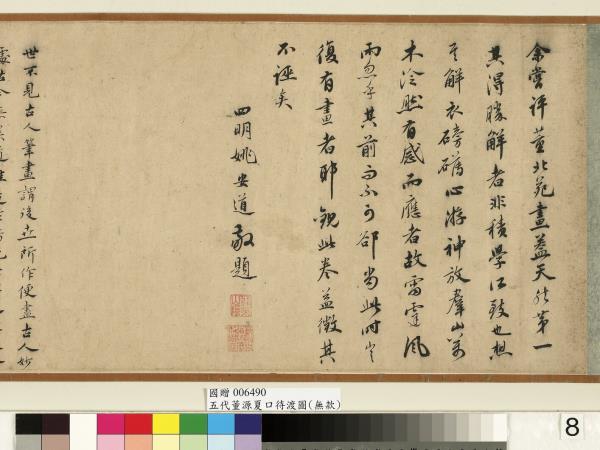 余嘗評董北苑畫蓋天然第一
其得勝解者非積學所致也想
其解衣磅礡心游神放羣山萬
木泠然有感而應者故雷霆風
雨忽乎其前而不可郤當此時豈
復有畫者耶觀此卷益徵其
不誣矣
四明姚安道敬題
世不見古人筆畫謂後世所作便盡古人妙
處古今
國贈 006490
五代董源夏口待渡圖(無款)
8